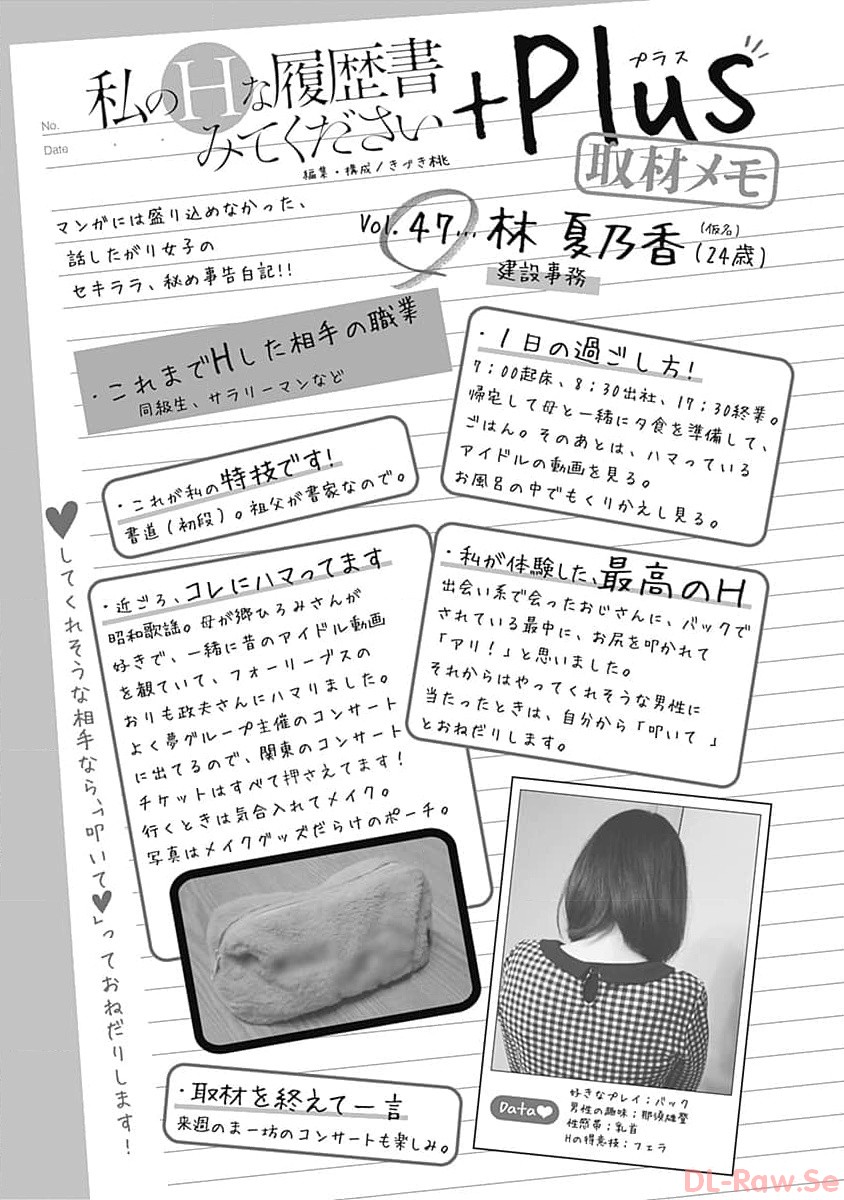 No.
Date
私のHな履歴書
みてください
+Plus
プラス
編集・構成/きづき桃
取材メモ
マンガには盛り込めなかった、
話したがり女子の
セキララ、秘め事告白記!!
Vol.47... 林 夏乃香(仮名)(24歳)
建設事務
・これまでHした相手の職業
同級生、サラリーマンなど
・1日の過ごし方!
7;00起床、8;30出社、17;30終業。
帰宅して母と一緒に夕食を準備して、
ごはん。そのあとは、ハマっている
アイドルの動画を見る。
お風呂の中でもくりかえし見る。
・これが私の特技です!
書道(初段)。祖父が書家なので。
・近ごろ、コレにハマってます
昭和歌謡。母が郷ひろみさんが
好きで、一緒に昔のアイドル動画
を観ていて、フォーリーブスの
おりも政夫さんにハマりました。
よく夢グループ主催のコンサート
に出てるので、関東のコンサート
チケットはすべて押さえてます!
行くときは気合入れてメイク。
写真はメイクグッズだらけのポーチ。
・私が体験した、最高のH
出会い系で会ったおじさんに、バックで
されている最中に、お尻を叩かれて
「アリ!」と思いました。
それからはやってくれそうな男性に
当たったときは、自分から「叩いて」
とおねだりします。
♥してくれそうな相手なら、「叩いて♥」っておねだりします!
・取材を終えて一言
来週のまー坊のコンサートも楽しみ。
Data♥
好きなプレイ;バック
男性の趣味;那須雄登
性感帯;乳首
Hの得意技;フェラ
DL-Raw.Se